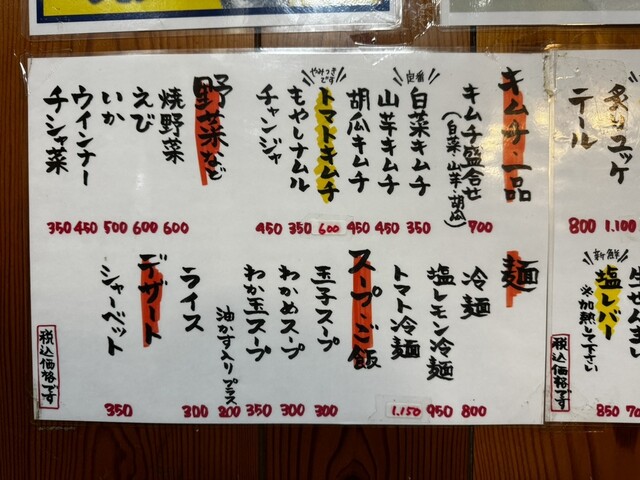 炙りユッケ 1.100
テール 800
新鮮
塩レバー 850
※加熱して下さい
税込価格です
キムチ・一品
キムチ盛合せ 700
(白菜・山芋・胡瓜)
定番
白菜キムチ 350
山芋キムチ 450
胡瓜キムチ 450
やみつきです
トマトキムチ 600
もやしナムル 350
チャンジャ 450
野菜など
焼野菜 600
えび 600
いか 500
ウインナー 450
チシャ菜 350
麺
冷麺 800
塩レモン冷麺 950
トマト冷麺 1.150
スープ・ご飯
玉子スープ 300
わかめスープ 300
わか玉スープ 350
油かす入りプラス 200
ライス 300
デザート
シャーベット 350
税込価格です